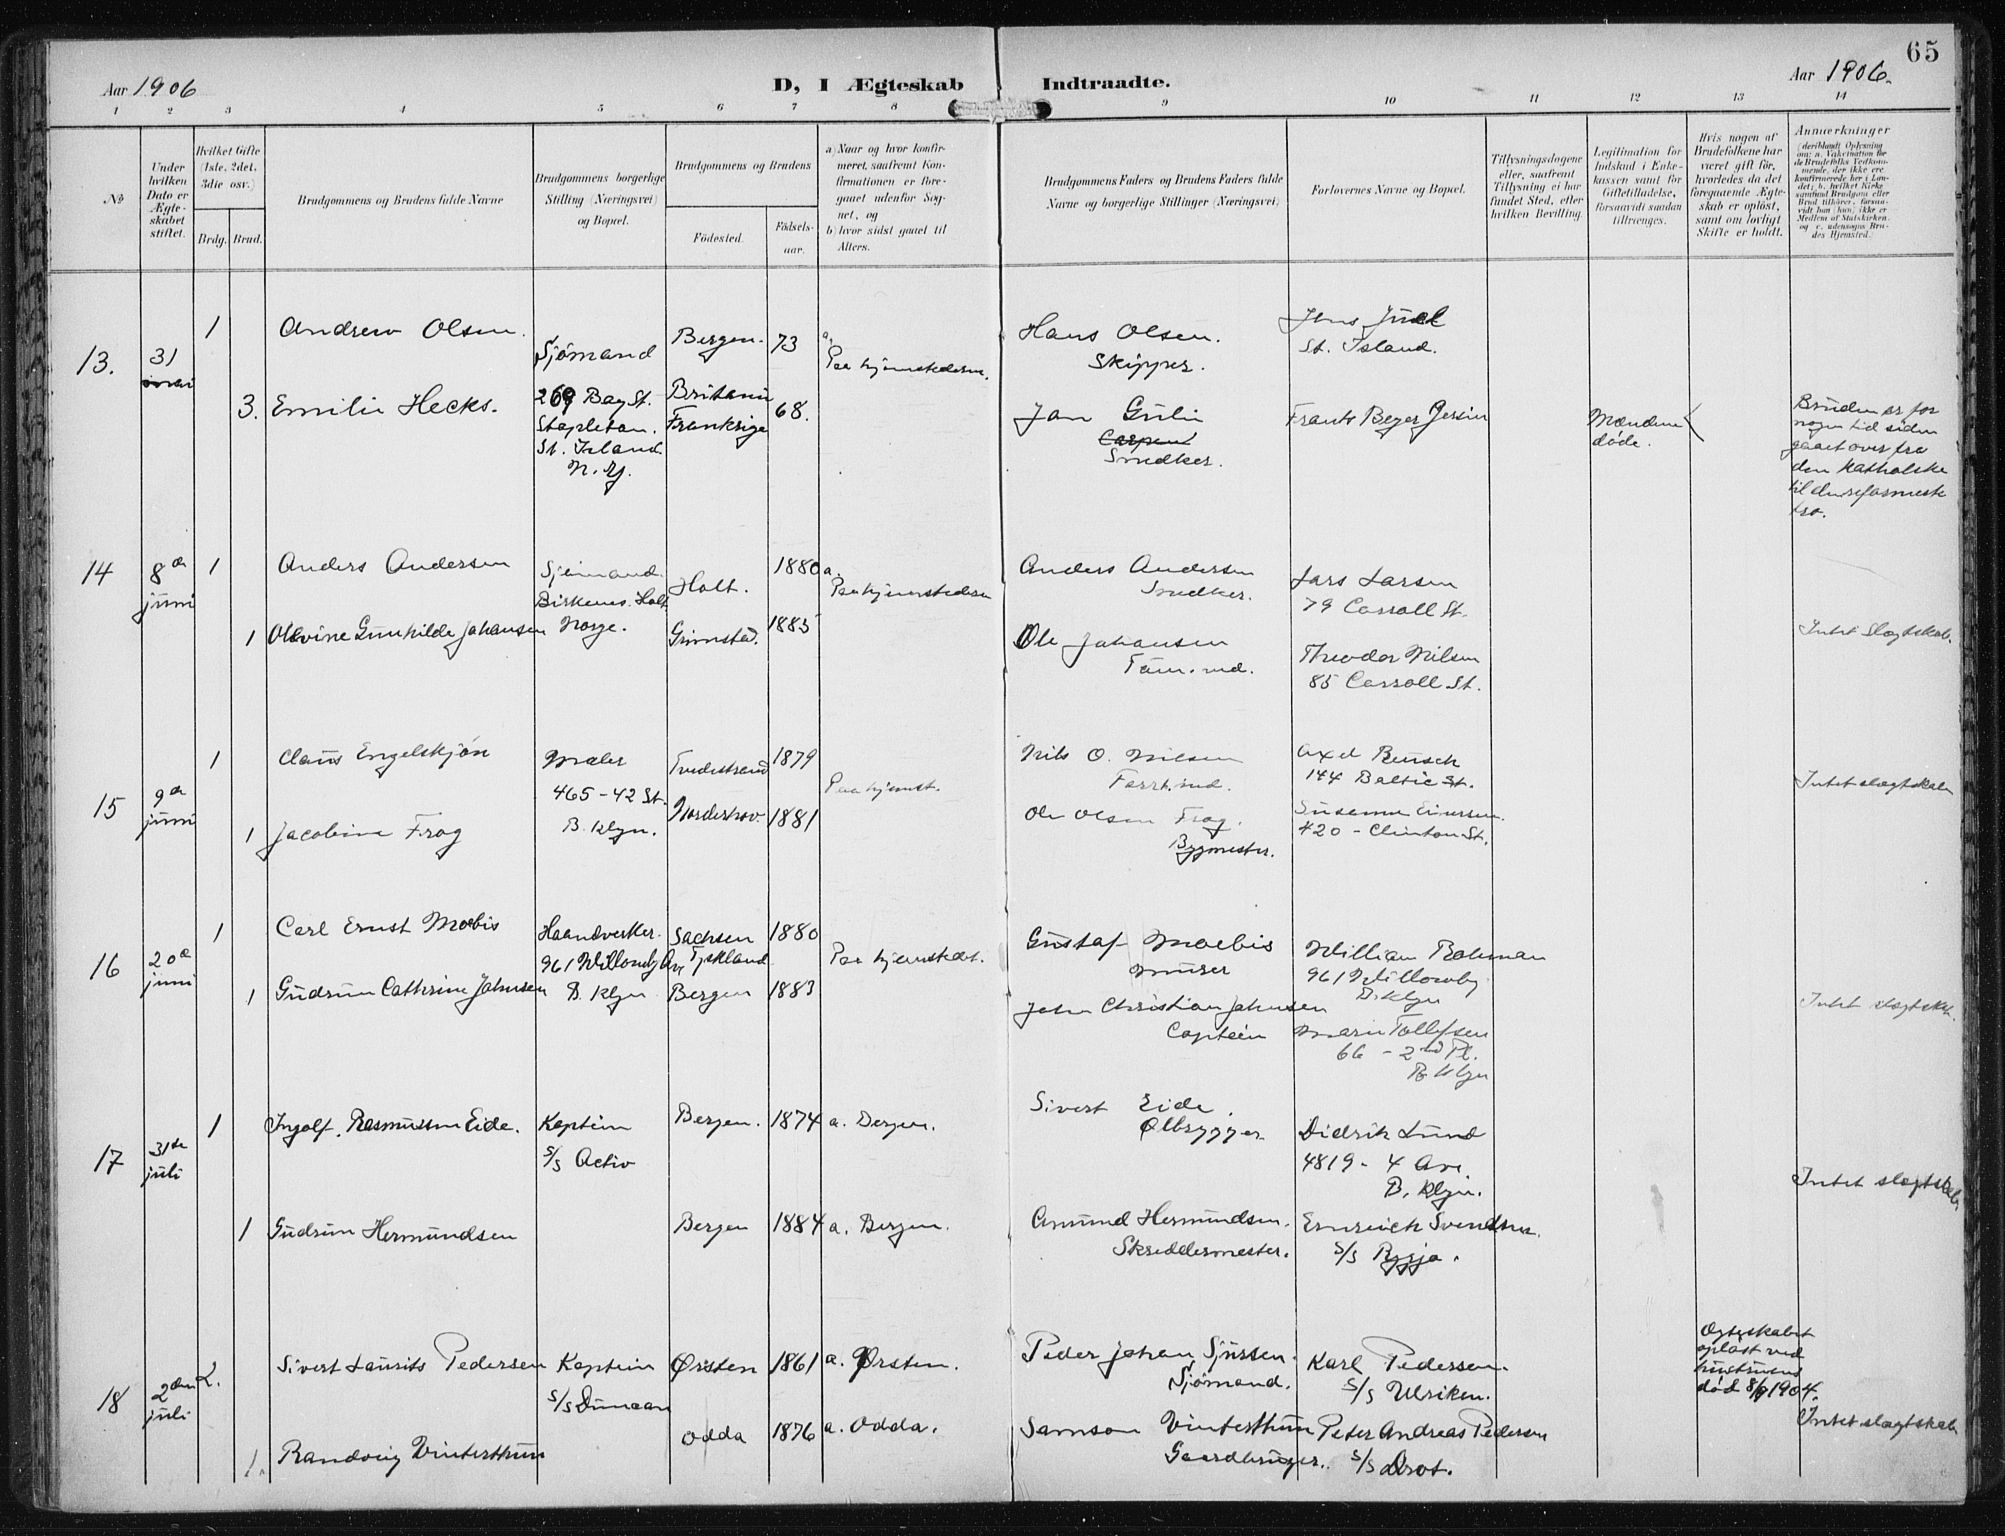 65
Aar 1906
D, I Ægteskab Indtraadte.
Aar 1906.
1 2 3 4 5 6 7 8 9 10 11 12 13 14
No
Under
hvilken
Dato er
Ægte-
skabet
stiftet.
Hvilket Gifte
(1ste, 2det,
3die osv.)
Brdg. Brud.
Brudgommens og Brudens fulde Navne
Brudgommens borgerlige
Stilling (Næringsvei)
og Bopæl.
Brudgommens og Brudens
Födested.
Födsels-
aar.
a) Naar og hvor konfir-
meret, saafremt Kon-
firmationen er fore-
gaaet udenfor Sog-
net, og
b) hvor sidst gaaet til
Alters.
Brudgommens Faders og Brudens Faders fulde
Navne og borgerlige Stillinger (Næringsvei)
Forlovernes Navne og Bopæl.
Tillysningsdagene
eller, saafremt
Tillysning ei har
fundet Sted, efter
hvilken Bevilling.
Legitimation for
Indskud i Enke-
kassen samt for
Giftetilladelse,
forsaavidt saadan
tiltrænges.
Hvis nogen af
Brudefolkene har
været gift för,
hvorledes da det
foregaaende Ægte-
skab er oplöst,
samt om lovligt
Skifte er holdt.
Anmerkninger
(deriblandt Oplysning
om: a. Vakcination for
de Brudefolks Vedkom-
mende, der ikke ere
konfirmerede her i Lan-
det; b. hvilket Kirke-
samfund Brudgom eller
Brud tilhörer, forsaa-
vidt han (hun) ikke er
Medlem af Statskirken,
og c. udensogns Bru-
des Hjemsted.
13.
31
mai
1
Andrew Olsen.
Sjömand
269 Bay St.
Stapleton.
St. Island.
N. Y.
Bergen. 73
a.
Paa hjemstederne.
Hans Olsen.
Skipper.
Jens Juel
St. Island.
3. Emilie Hecks.
Britanie
Frankrige 68.
Jan Guli
Carpent
Snedker.
Frants Beyer Jersin
Mændene
døde.
Bruden er for
nogen tid siden
gaaet over fra
den katholske
til den reformerte
tro.
14
8de
juni
1
Anders Andersen
Sjømand.
Birkenes. Holt
Norge.
Holt. 1880
a.
Paa hjemstederne
Anders Andersen
Snedker.
Lars Larsen
79 Carroll St.
1 Olevine Gunhilde Johansen
Grimstad. 1885
Ole Johansen
Tøm.md.
Theodor Nilsen
85 Carroll St.
Intet Slægtskab.
15
9de
juni
1
Claus Engelskjøn
Maler
465 - 42 St.
B. klyn.
Tvedestrand 1879
Paa hjemst.
Nils O. Nilsen
Forst.md.
Axel Reusch
144 Baltic St.
1 Jacobine Frog
Norderhov. 1881
Ole Olsen Frog.
Bygmester.
Susanne Einersen.
420 - Clinton St.
Intet slægtskab
16
20de
juni
1
Carl Ernst Moebis
Haandverker.
961 Willowby Av
B. klyn
Sachsen
Tyskland 1880
Paa hjemstedet.
Gustaf Moebis
Murer
William Rohman
961 Willowby
B. klyn
1 Gudrun Cathrine Johnsen
Bergen 1883
John Christian Johnsen
Captein
Marie Tollefsen
66 - 2nd Pl.
B klyn
Intet slægtskab.
17
31te
juli
1
Ingolf. Rasmussen Eide.
Kaptein
S/S Activ
Bergen. 1874 a. Bergen.
Sivert Eide.
Ølbrygger
Didrik Lund
4819 - 4 Ave.
B. klyn.
1 Gudrun Hermundsen
Bergen 1884 a. Bergen.
Amund Hermundsen.
Skreddermester.
Emreich Svendsen.
S/S Bygja.
Intet slægtskab
18
2den
juli
2.
Sivert Laurits Pedersen
Kaptein
S/S Duncan
Ørsten 1861 a. Ørsten.
Peder Johan Sjurssen.
Sjømand.
Karl Pedersen.
S/S Ulriken.
Ægteskabet
opløst ved
hustruens
død 8/9 1904.
1. Randvig Vinterthun
Odda 1876 a. Odda.
Samson Vinterthun
Gaardbruger.
Peter Andreas Pedersen
S/S Drot.
Intet slægtskab